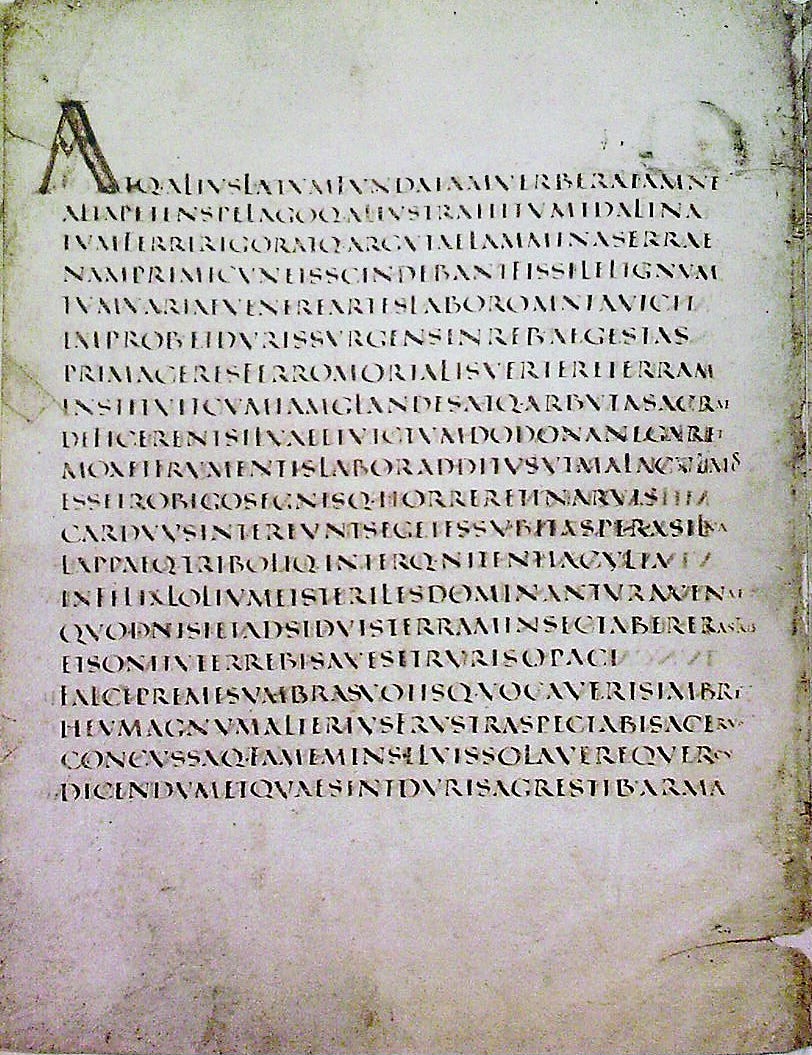 ATQ·ALIVSLATVMFVNDAIAMVERBERATAMNE
ALTAPETENSPELAGOQ·ALIVSTRAHITVMIDALINA
TVMFERRIRIGORATQ·ARGVTAELAMMINASERRAE
NAMPRIMICVNEISSCINDEBANTFISSILELIGNVM
TVMVARIAEVENEREARTESLABOROMNIAVICIT
IMPROB·ETDVRISSVRGENSINREB·AEGESTAS
PRIMACERESFERROMORTALISVERTERETERRAM
INSTITVITCVMIAMGLANDESATQ·ARBVTASACRAE
DEFICERENTSILVAEETVICTVMDODONANEGARET
MOXETFRVMENTISLABORADDITVSVTMALACVLMOS
ESSETROBIGOSEGNISQ·HORRERETINARVIS
CARDVVSINTEREVNTSEGETESSVBITASPERASILVA
LAPPAEQ·TRIBOLIQ·INTERQ·NITENTIACVLTA
INFELIXLOLIVMETSTERILESDOMINANTVRAVENAE
QVODNISIETADSIDVISTERRAMINSECTABERERASTRIS
ETSONITVTERREBISAVESETRVRISOPACI
FALCEPREMESVMBRASVOTISQ·VOCAVERISIMBRE
HEVMAGNVMALTERIVSFRVSTRASPECTABISACERVO
CONCVSSAQ·FAMEMINSILVISSOLAVEREQVERCV
DICENDVMETQVAESINTDVRISAGRESTIB·ARMA